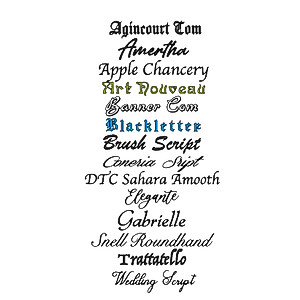 Agincourt Com
Amertha
Apple Chancery
Art Nouveau
Banner Com
Blackletter
Brush Script
Coneria Sript
DTC Sahara Amooth
Elegante
Gabrielle
Snell Roundhand
Trattatello
Wedding Script